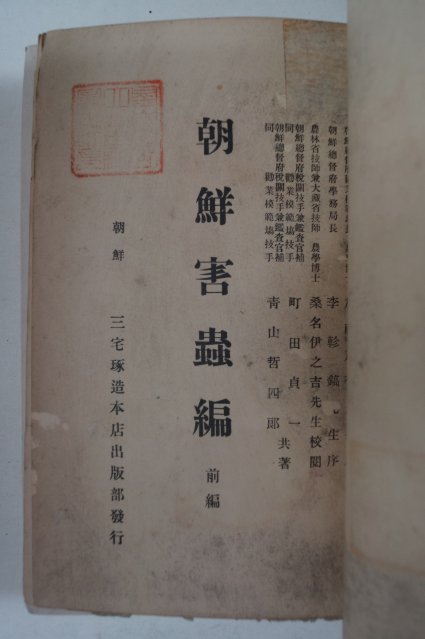 朝鮮總督府學務局長 李軫鎬先生序
農林省技師兼大藏省技師 農學博士 桑名伊之吉先生校閱
朝鮮總督府稅關技手兼鑑查官補
同 勸業模範場技手 町田貞一
朝鮮總督府稅關技手兼鑑查官補
同 勸業模範場技手 靑山哲四郞 共著
朝鮮害蟲編 前編
朝鮮 三宅琢造本店出版部發行